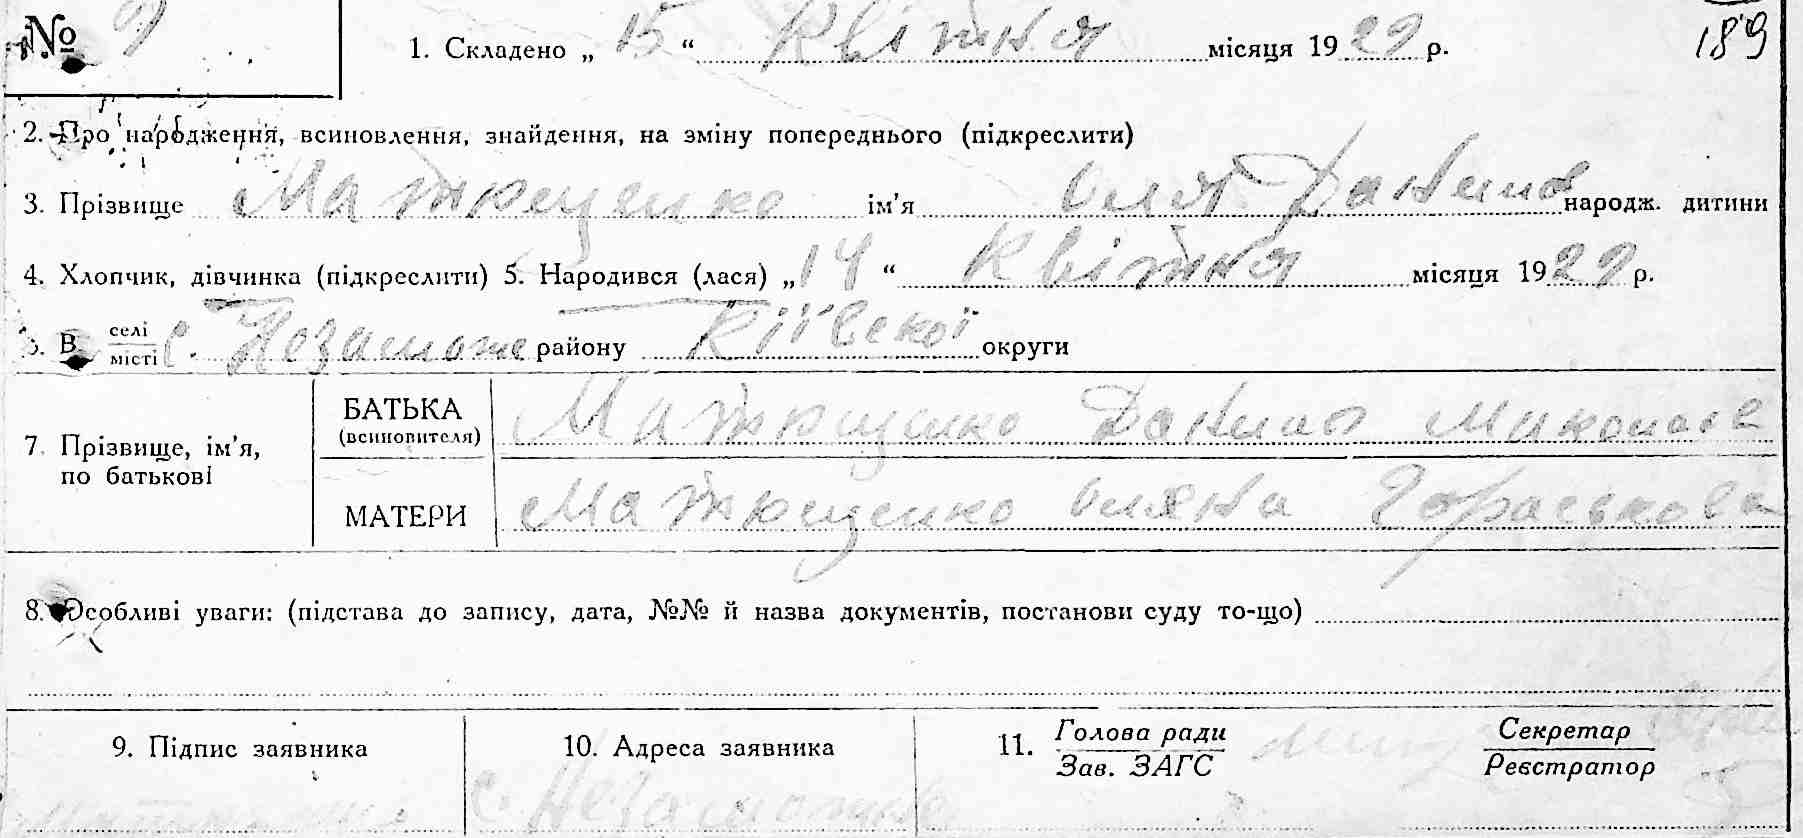 № 9 1. Складено „ 15 “ Квітня місяця 1929 р. 189
2. Про народження, всиновлення, знайдення, на зміну попереднього (підкреслити)
3. Прізвище Матющенко ім’я Оля Данилов народж. дитини
4. Хлопчик, дівчинка (підкреслити) 5. Народився (лася) „ 14 “ Квітня місяця 1929 р.
6. В селі/місті с. Незаможне району Київської округи
7. Прізвище, ім’я, по батькові
БАТЬКА (всиновителя) Матющенко Данило Миколаєв
МАТЕРИ Матющенко Оляна
8. Особливі уваги: (підстава до запису, дата, №№ й назва документів, постанови суду то-що)
9. Підпис заявника 10. Адреса заявника 11. Голова ради Секретар
Зав. ЗАГС Реєстратор
с. Незаможне